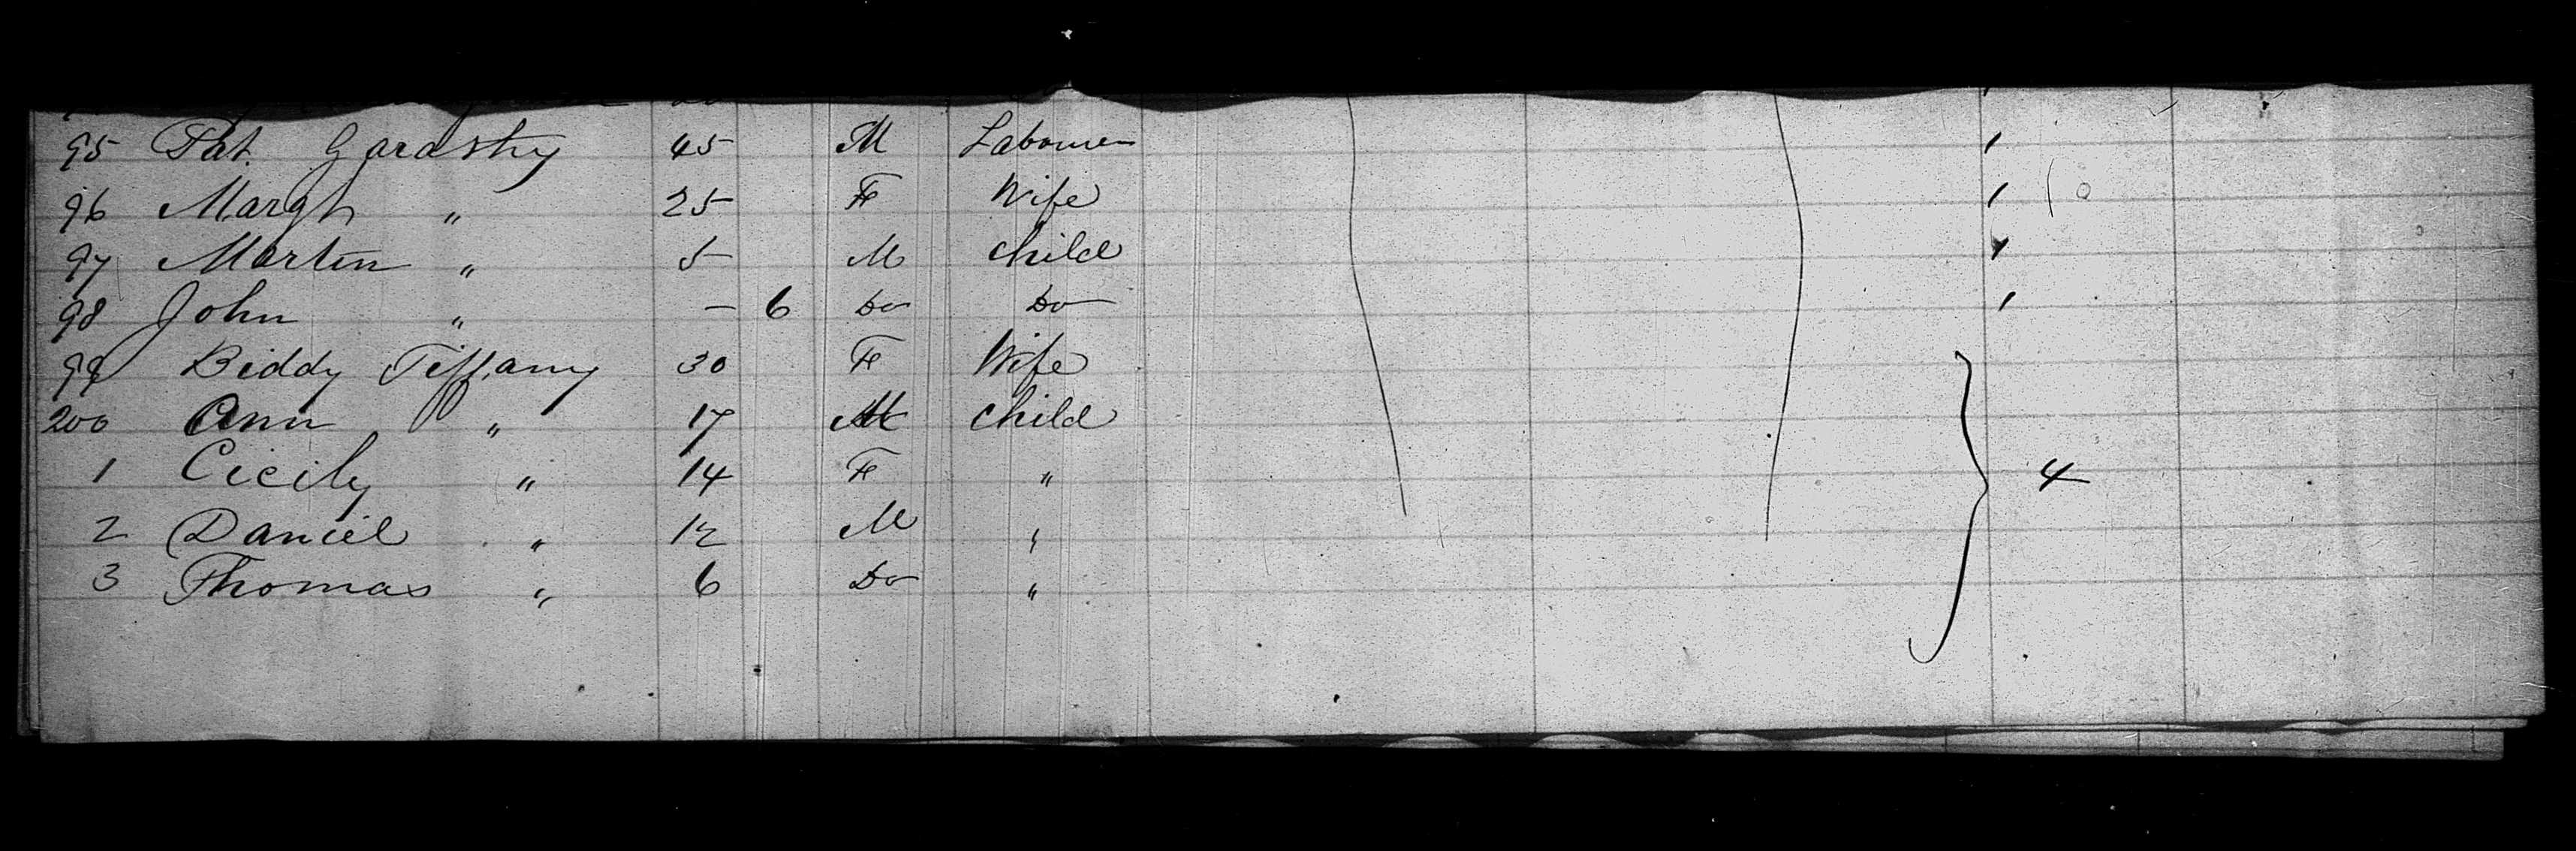 95 Pat. Garastry 45 M Labourer 1
96 Margt " 25 F Wife 1
97 Martin " 5 M Child 1
98 John " — 6 Do Do 1
99 Biddy Tiffany 30 F Wife
200 Ann " 17 M Child
1 Cicily " 14 F " 4
2 Daniel " 12 M "
3 Thomas " 6 Do "